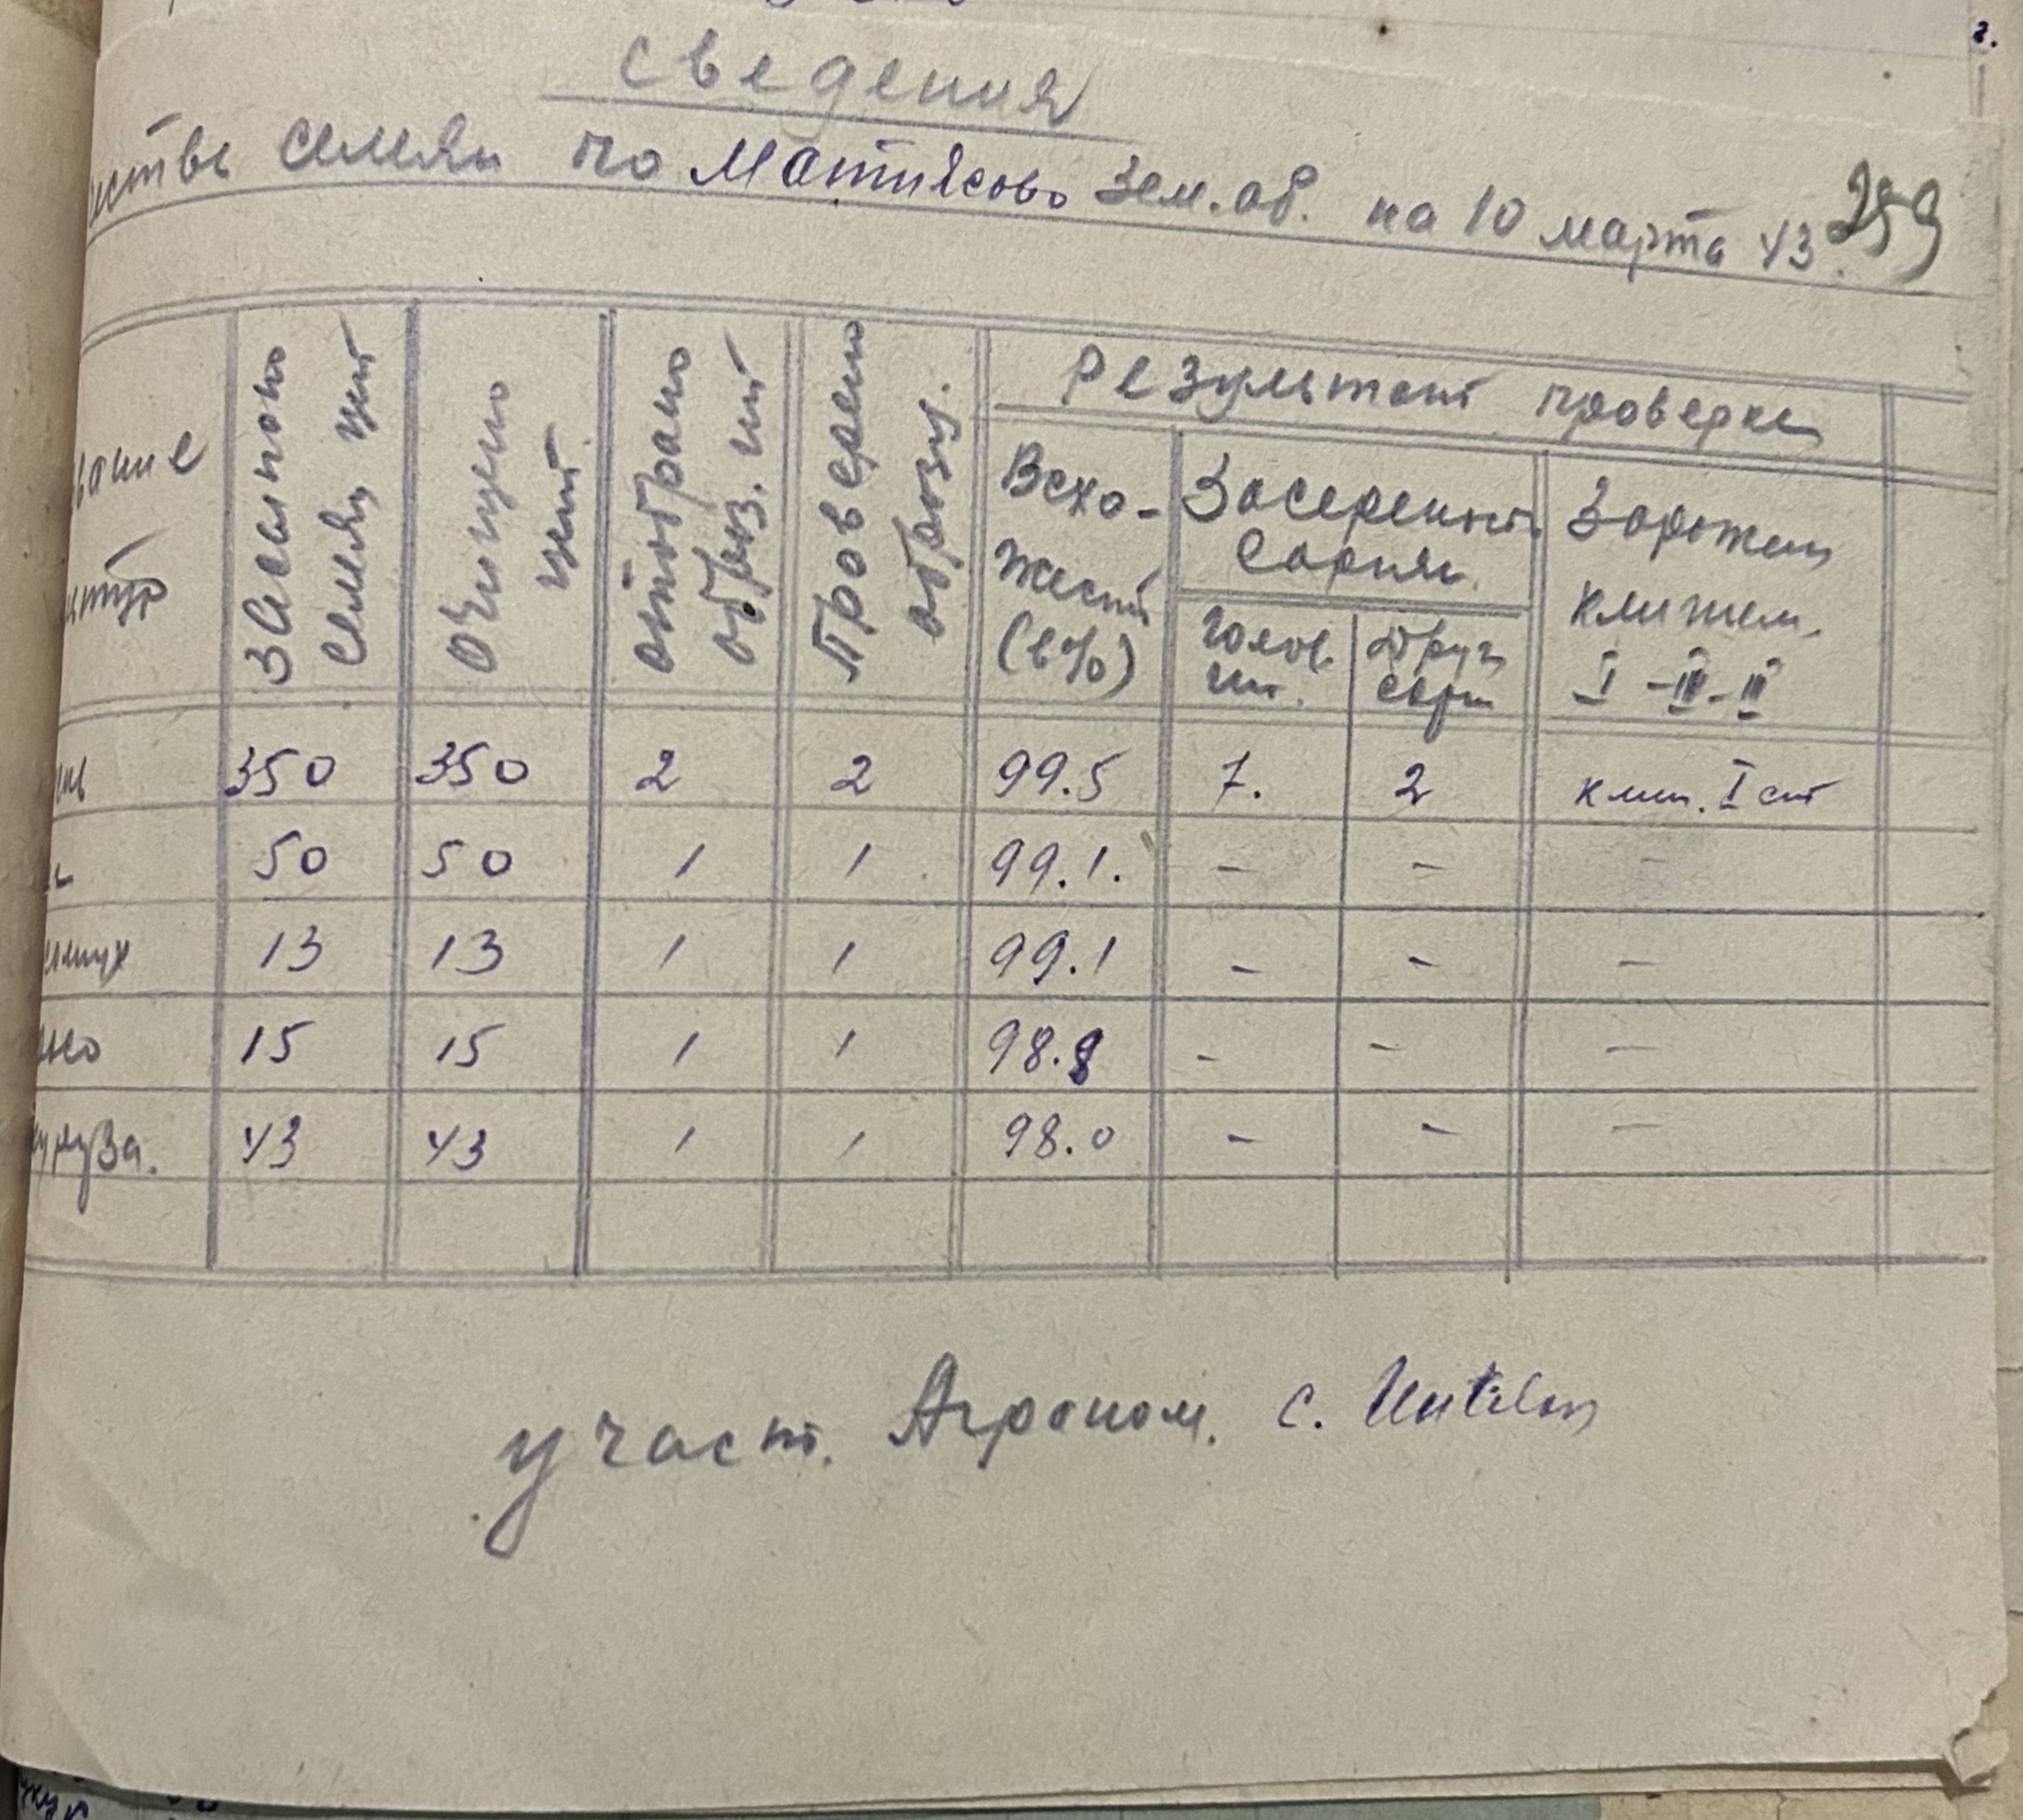 сведения
естве семян по Матиясово Зем.об. на 10 марта 43
259
вание
ьтур
Засыпано
семян цнт
Очищено
цнт.
отобрано
образ. шт
Проверено
образц.
Результат проверки
Всхо-
жест
(в%)
Засеренност
Сорняк.
Голов
ни.
Друг
сорн
Заражен
клищем.
I - III - II
350 350 2 2 99.5 7. 2 клищ. I ст
50 50 1 1 99.1. - - -
13 13 1 1 99.1 - - -
15 15 1 1 98.8 - - -
куруза. 43 43 1 1 98.0 - - -
участ. Агроном. С.